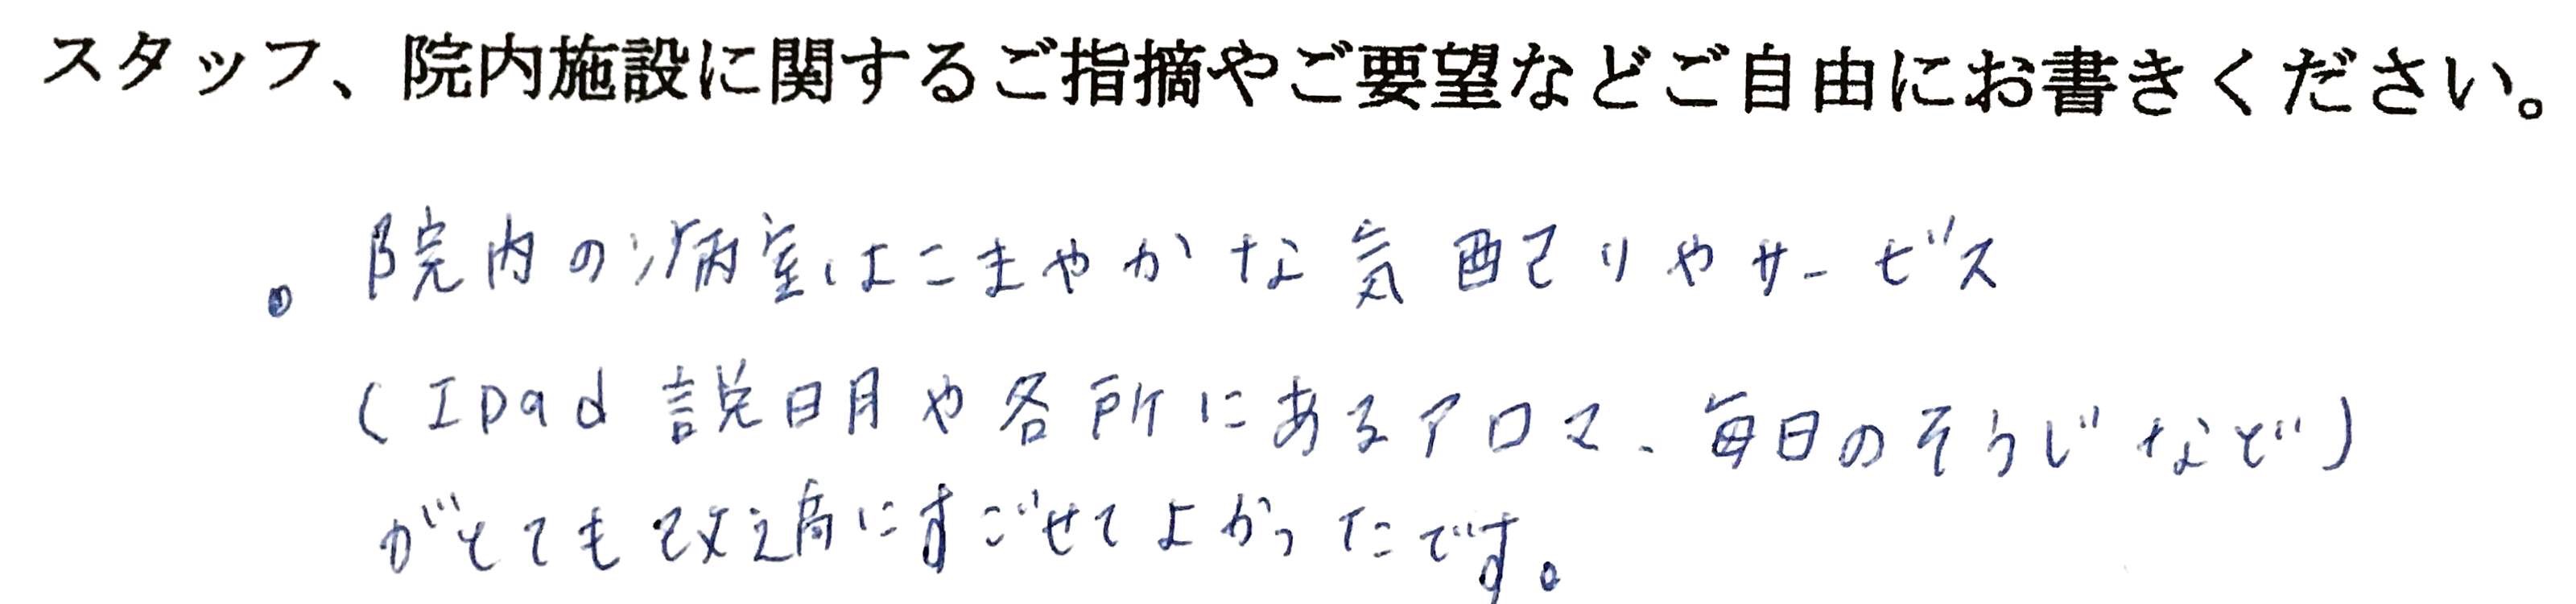 スタッフ、院内施設に関するご指摘やご要望などご自由にお書きください。
。院内の病室はこまやかな気配りやサービス
(IPad説明や各所にあるアロマ、毎日のそうじなど)
がとても快適にすごせてよかったです。